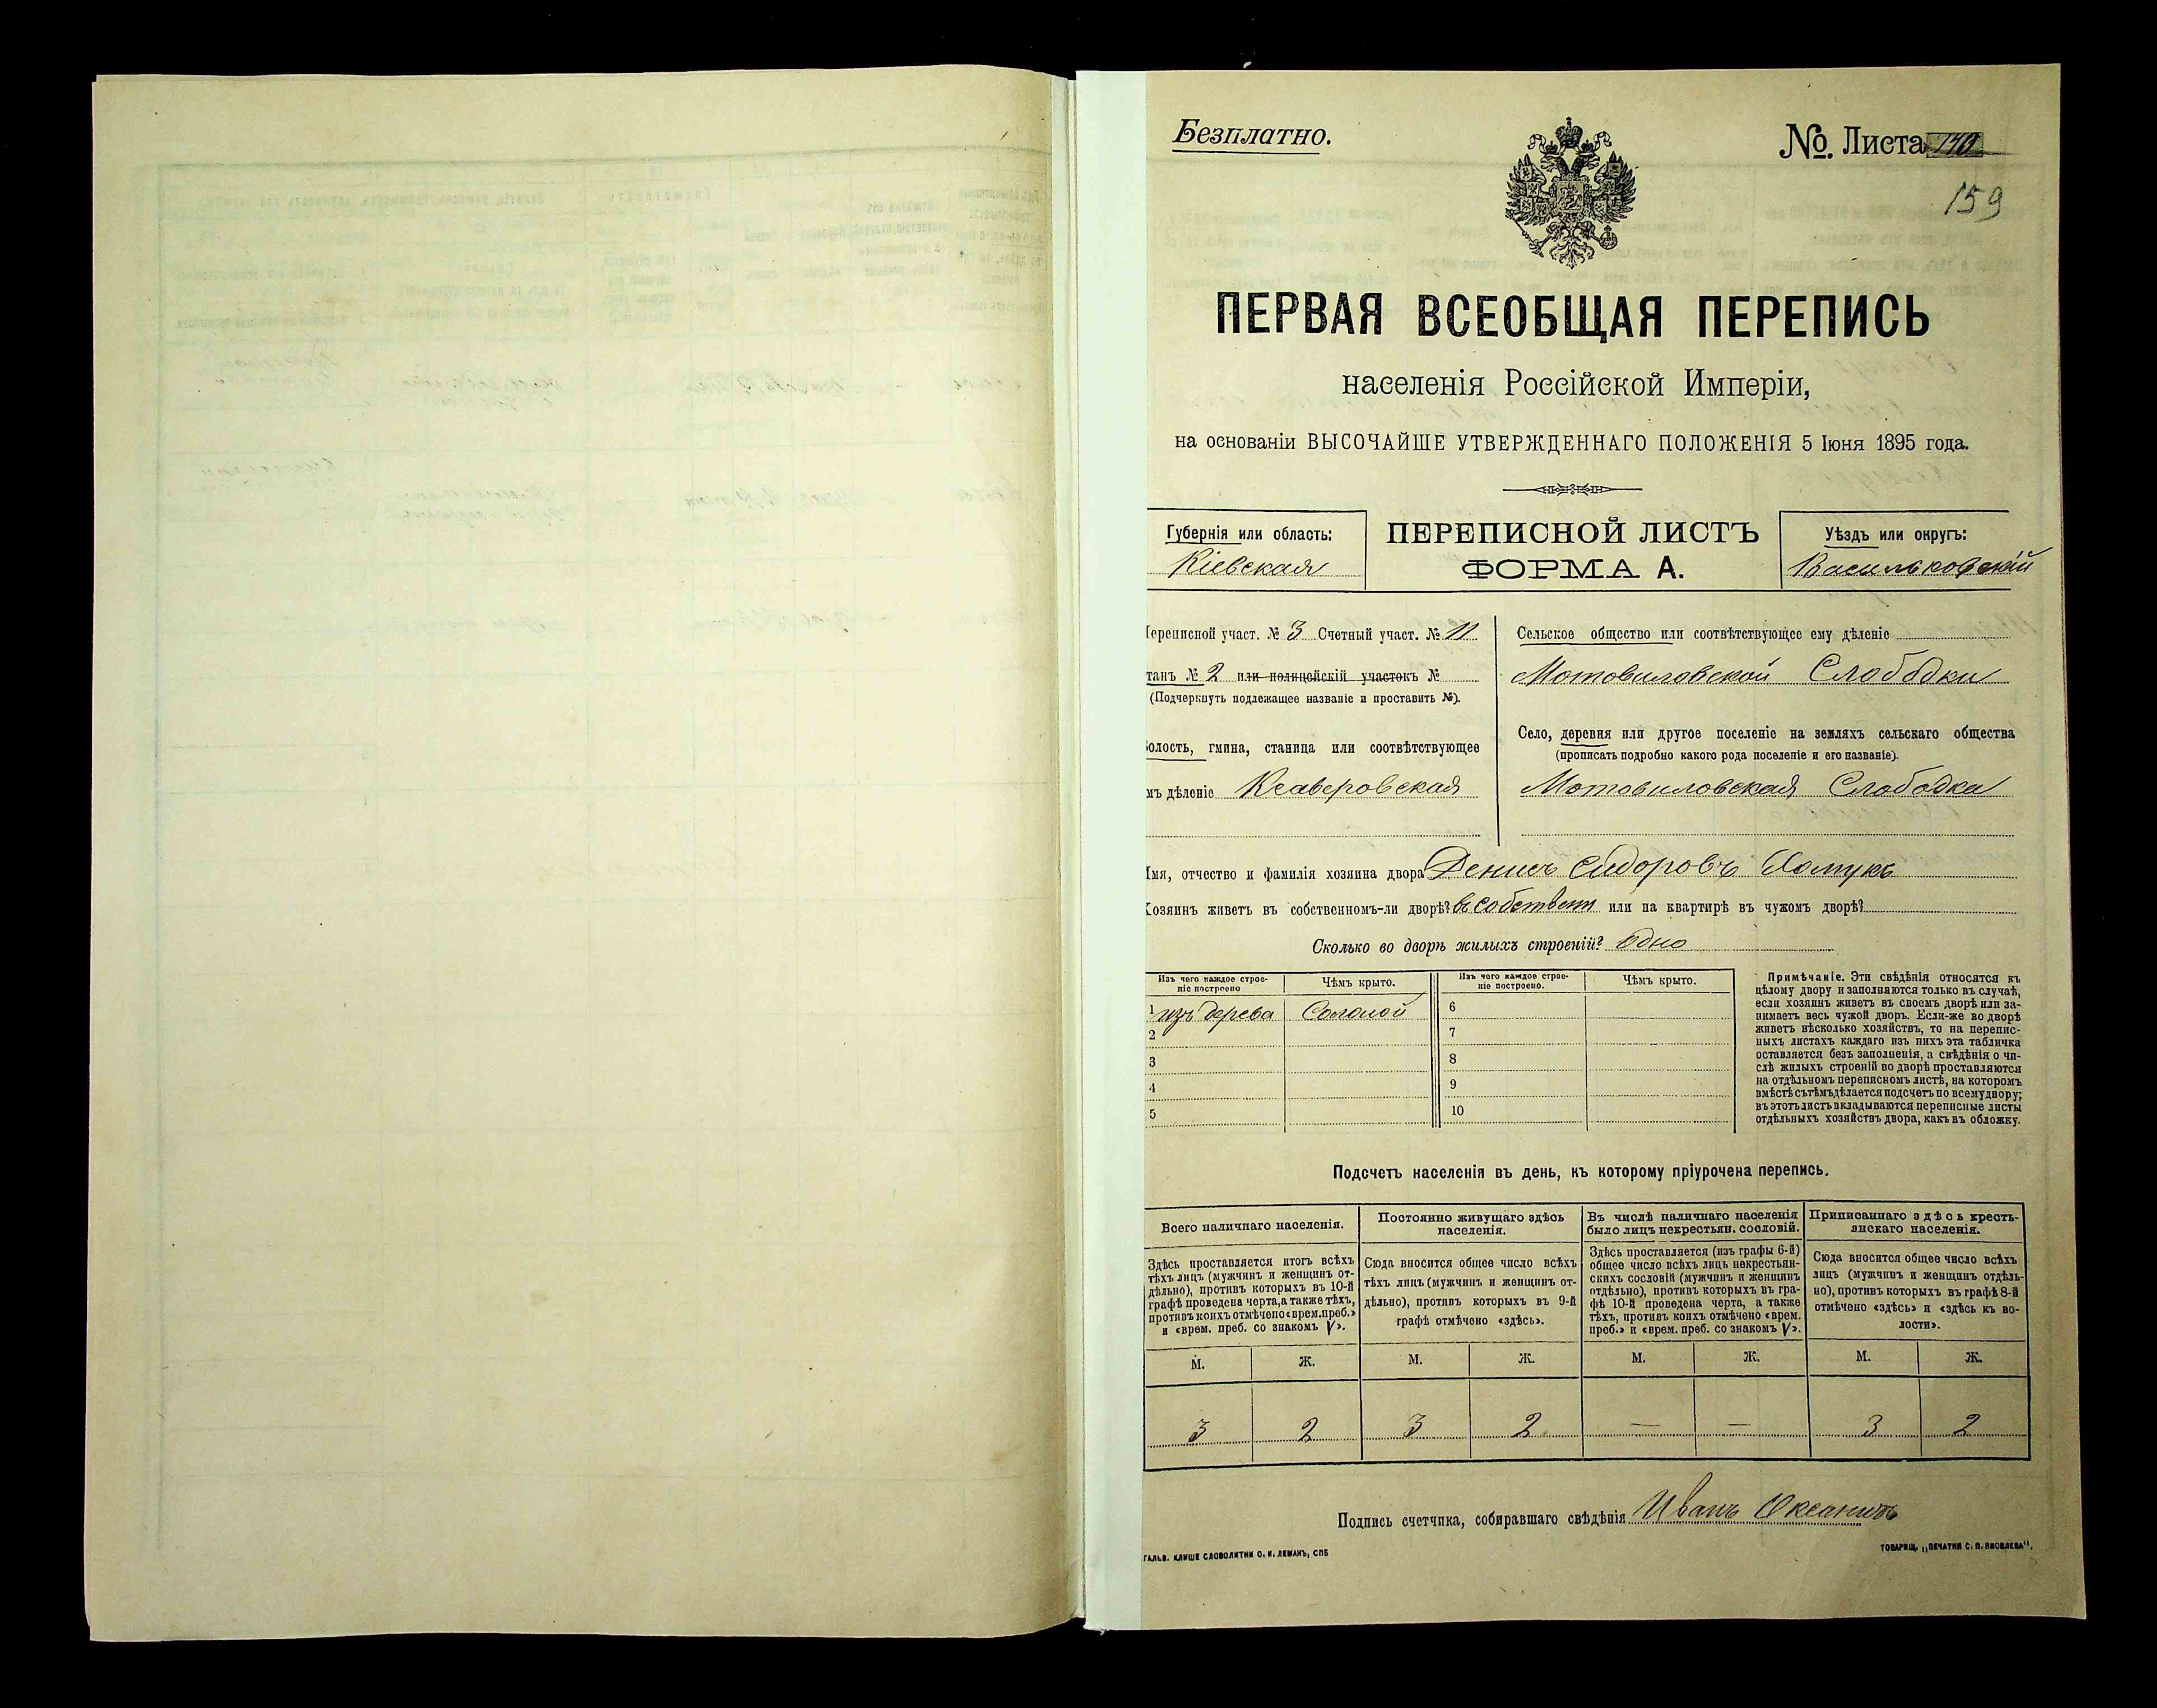 Безплатно.
№. Листа 140
159
ПЕРВАЯ ВСЕОБЩАЯ ПЕРЕПИСЬ
населенія Россійской Имперіи,
на основаніи ВЫСОЧАЙШЕ УТВЕРЖДЕННАГО ПОЛОЖЕНІЯ 5 Іюня 1895 года.
Губернія или область:
Кіевская
ПЕРЕПИСНОЙ ЛИСТЪ
ФОРМА А.
Уѣздъ или округъ:
Васильковскій
Переписной участ. № 3 Счетный участ. № 11
танъ № 2 или полицейскій участокъ №
(Подчеркнуть подлежащее названіе и проставить №).
олость, гмина, станица или соотвѣтствующее
мъ дѣленіе Ксаверовская
Сельское общество или соотвѣтствующее ему дѣленіе
Мотовиловской Слободки
Село, деревня или другое поселеніе на земляхъ сельскаго общества
(прописать подробно какого рода поселеніе и его названіе).
Мотовиловская Слободка
Имя, отчество и фамилія хозяина двора Денисъ Сидоровъ Хомукъ
Хозяинъ живетъ въ собственномъ-ли дворѣ? въ собствен или на квартирѣ въ чужомъ дворѣ?
Сколько во дворѣ жилыхъ строеній? одно
Изъ чего каждое строе-
ніе построено
Чѣмъ крыто.
Изъ чего каждое строе-
ніе построено.
Чѣмъ крыто.
1 изъ дерева Соломой
2
3
4
5
6
7
8
9
10
Примѣчаніе. Эти свѣдѣнія относятся къ
цѣлому двору и заполняются только въ случаѣ,
если хозяинъ живетъ въ своемъ дворѣ или за-
нимаетъ весь чужой дворъ. Если-же во дворѣ
живетъ нѣсколько хозяйствъ, то на перепис-
ныхъ листахъ каждаго изъ нихъ эта табличка
оставляется безъ заполненія, а свѣдѣнія о чи-
слѣ жилыхъ строеній во дворѣ проставляются
на отдѣльномъ переписномъ листѣ, на которомъ
вмѣстѣ съ тѣмъ дѣлается подсчетъ по всему двору;
въ этотъ листъ вкладываются переписные листы
отдѣльныхъ хозяйствъ двора, какъ въ обложку.
Подсчетъ населенія въ день, къ которому пріурочена перепись.
Всего наличнаго населенія.
Здѣсь проставляется итогъ всѣхъ
тѣхъ лицъ (мужчинъ и женщинъ от-
дѣльно), противъ которыхъ въ 10-й
графѣ проведена черта, а также тѣхъ,
противъ коихъ отмѣчено «врем. преб.»
и «врем. преб. со знакомъ V».
Постоянно живущаго здѣсь
населенія.
Сюда вносится общее число всѣхъ
тѣхъ лицъ (мужчинъ и женщинъ от-
дѣльно), противъ которыхъ въ 9-й
графѣ отмѣчено «здѣсь».
Въ числѣ наличнаго населенія
было лицъ некрестьян. сословій.
Здѣсь проставляется (изъ графы 6-й)
общее число всѣхъ лицъ некрестьян-
скихъ сословій (мужчинъ и женщинъ
отдѣльно), противъ которыхъ въ гра-
фѣ 10-й проведена черта, а также
тѣхъ, противъ коихъ отмѣчено «врем.
преб.» и «врем. преб. со знакомъ V».
Приписаннаго здѣсь кресть-
янскаго населенія.
Сюда вносится общее число всѣхъ
лицъ (мужчинъ и женщинъ отдѣль-
но), противъ которыхъ въ графѣ 8-й
отмѣчено «здѣсь» и «здѣсь къ во-
лости».
М. Ж. М. Ж. М. Ж. М. Ж.
3 2 3 2 — — 3 2
Подпись счетчика, собиравшаго свѣдѣнія Иванъ
ГАЛЬВ. КЛИШЕ СЛОВОЛИТНИ О. И. ЛЕМАНЪ, СПБ
ТОВАРИЩ. „ПЕЧАТНЯ С. П. ЯКОВЛЕВА“,